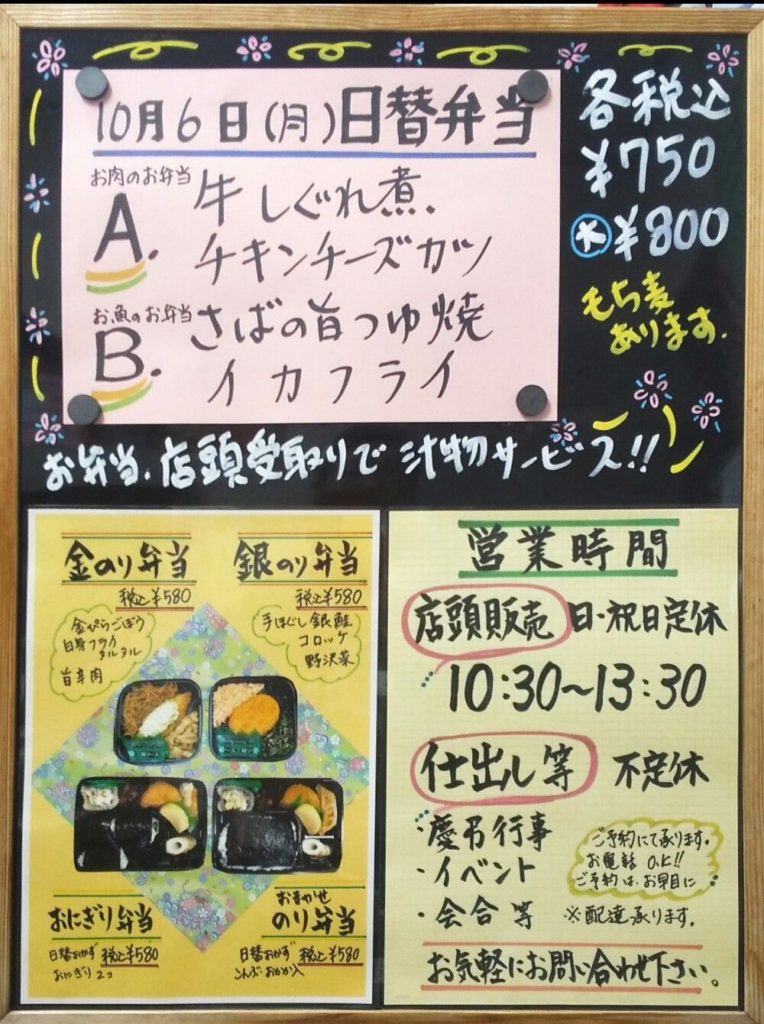 10月6日(月)日替弁当
お肉のお弁当
A.
牛しぐれ煮.
チキンチーズカツ
お魚のお弁当
B.
さばの旨つゆ焼
イカフライ
各税込
¥750
大¥800
もち麦
あります.
お弁当、店頭受取りで 汁物サービス!!
金のり弁当
税込¥580
金ぴらごぼう
白身フライ
タルタル
旨辛肉
銀のり弁当
税込¥580
手ほぐし銀鮭
コロッケ
野沢菜
おにぎり弁当
日替おかず 税込¥580
おにぎり2コ
おまかせ
のり弁当
日替おかず 税込¥580
こんぶ・おかか入
営業時間
店頭販売 日・祝日定休
10:30~13:30
仕出し等 不定休
・慶弔行事
・イベント
・会合等
ご予約にて承ります。
お電話 O.K!!
ご予約は、お早目に
※配達承ります.
お気軽にお問い合わせ下さい。